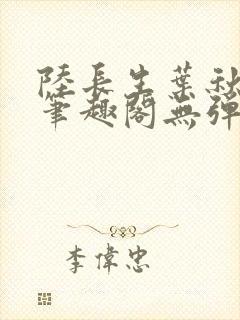 陸長生葉秋
筆趣閣無彈
李偉忠